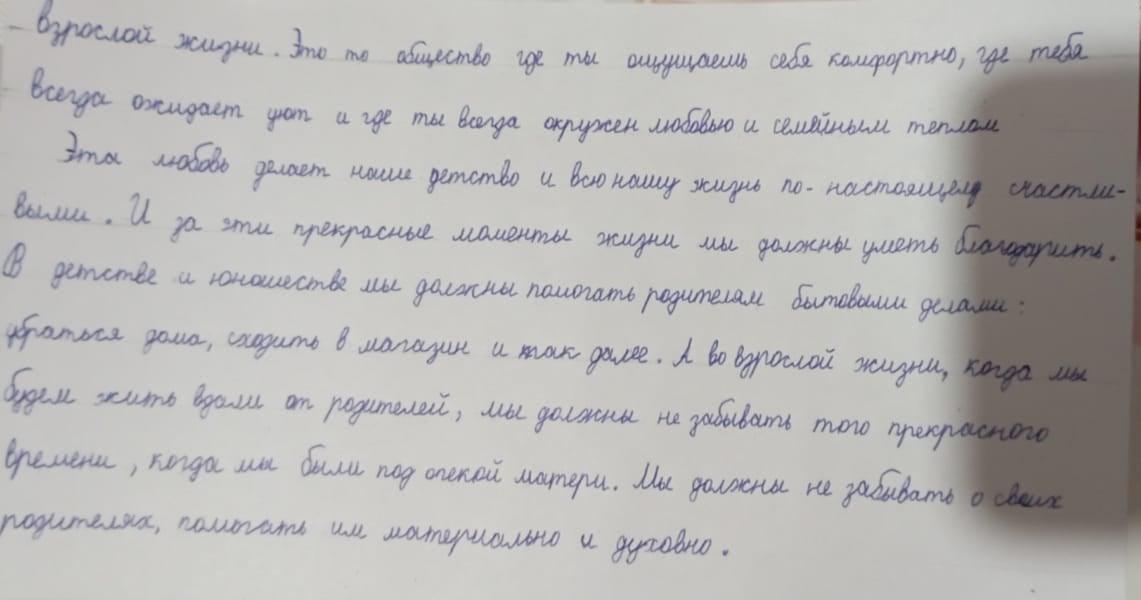 взрослой жизни. Это то общество где ты ощущаешь себя комфортно, где тебя
всегда ожидает уют и где ты всегда окружен любовью и семейным теплом
Эта любовь делает наше детство и всю нашу жизнь по-настоящему счастли-
выми. И за эти прекрасные моменты жизни мы должны уметь благодарить.
В детстве и юношестве мы должны помогать родителям бытовыми делами:
убраться дома, сходить в магазин и так далее. А во взрослой жизни, когда мы
будем жить вдали от родителей, мы должны не забывать того прекрасного
времени, когда мы были под опекой матери. Мы должны не забывать о своих
родителях, помогать им материально и духовно.